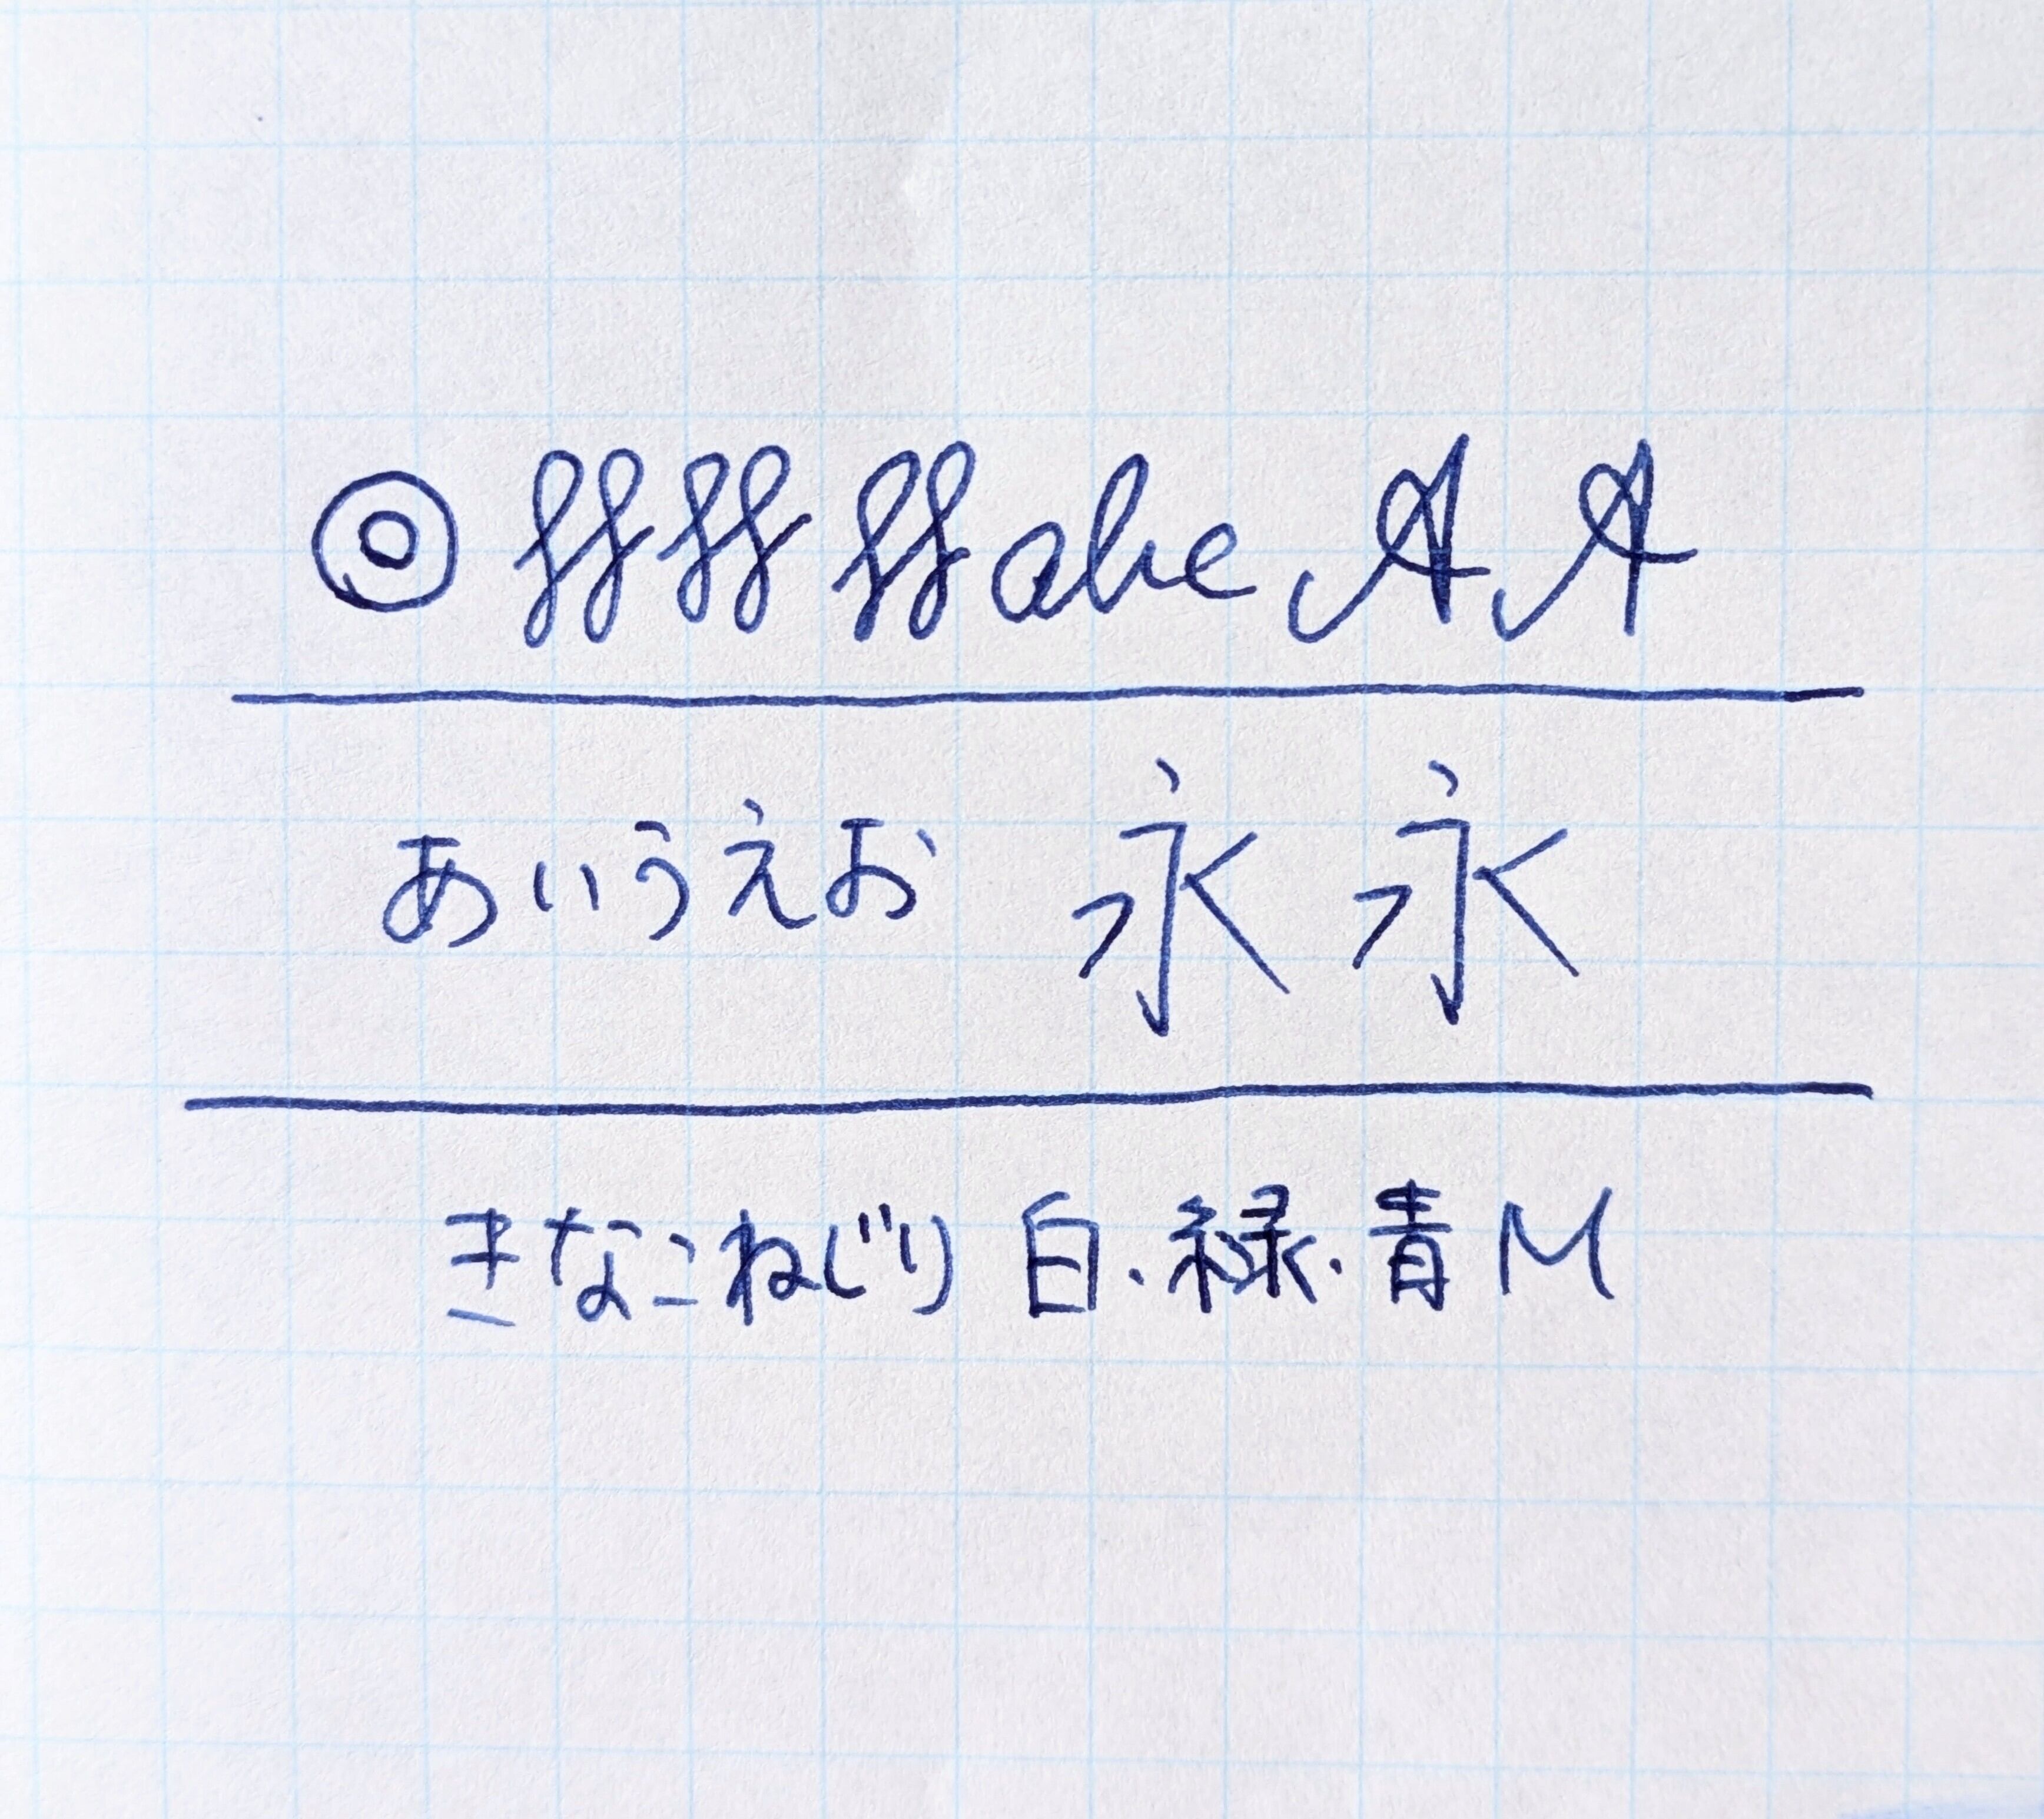 ◎ ffffff abc A A
あいうえお 永 永
きなこねじり 白・緑・青 M